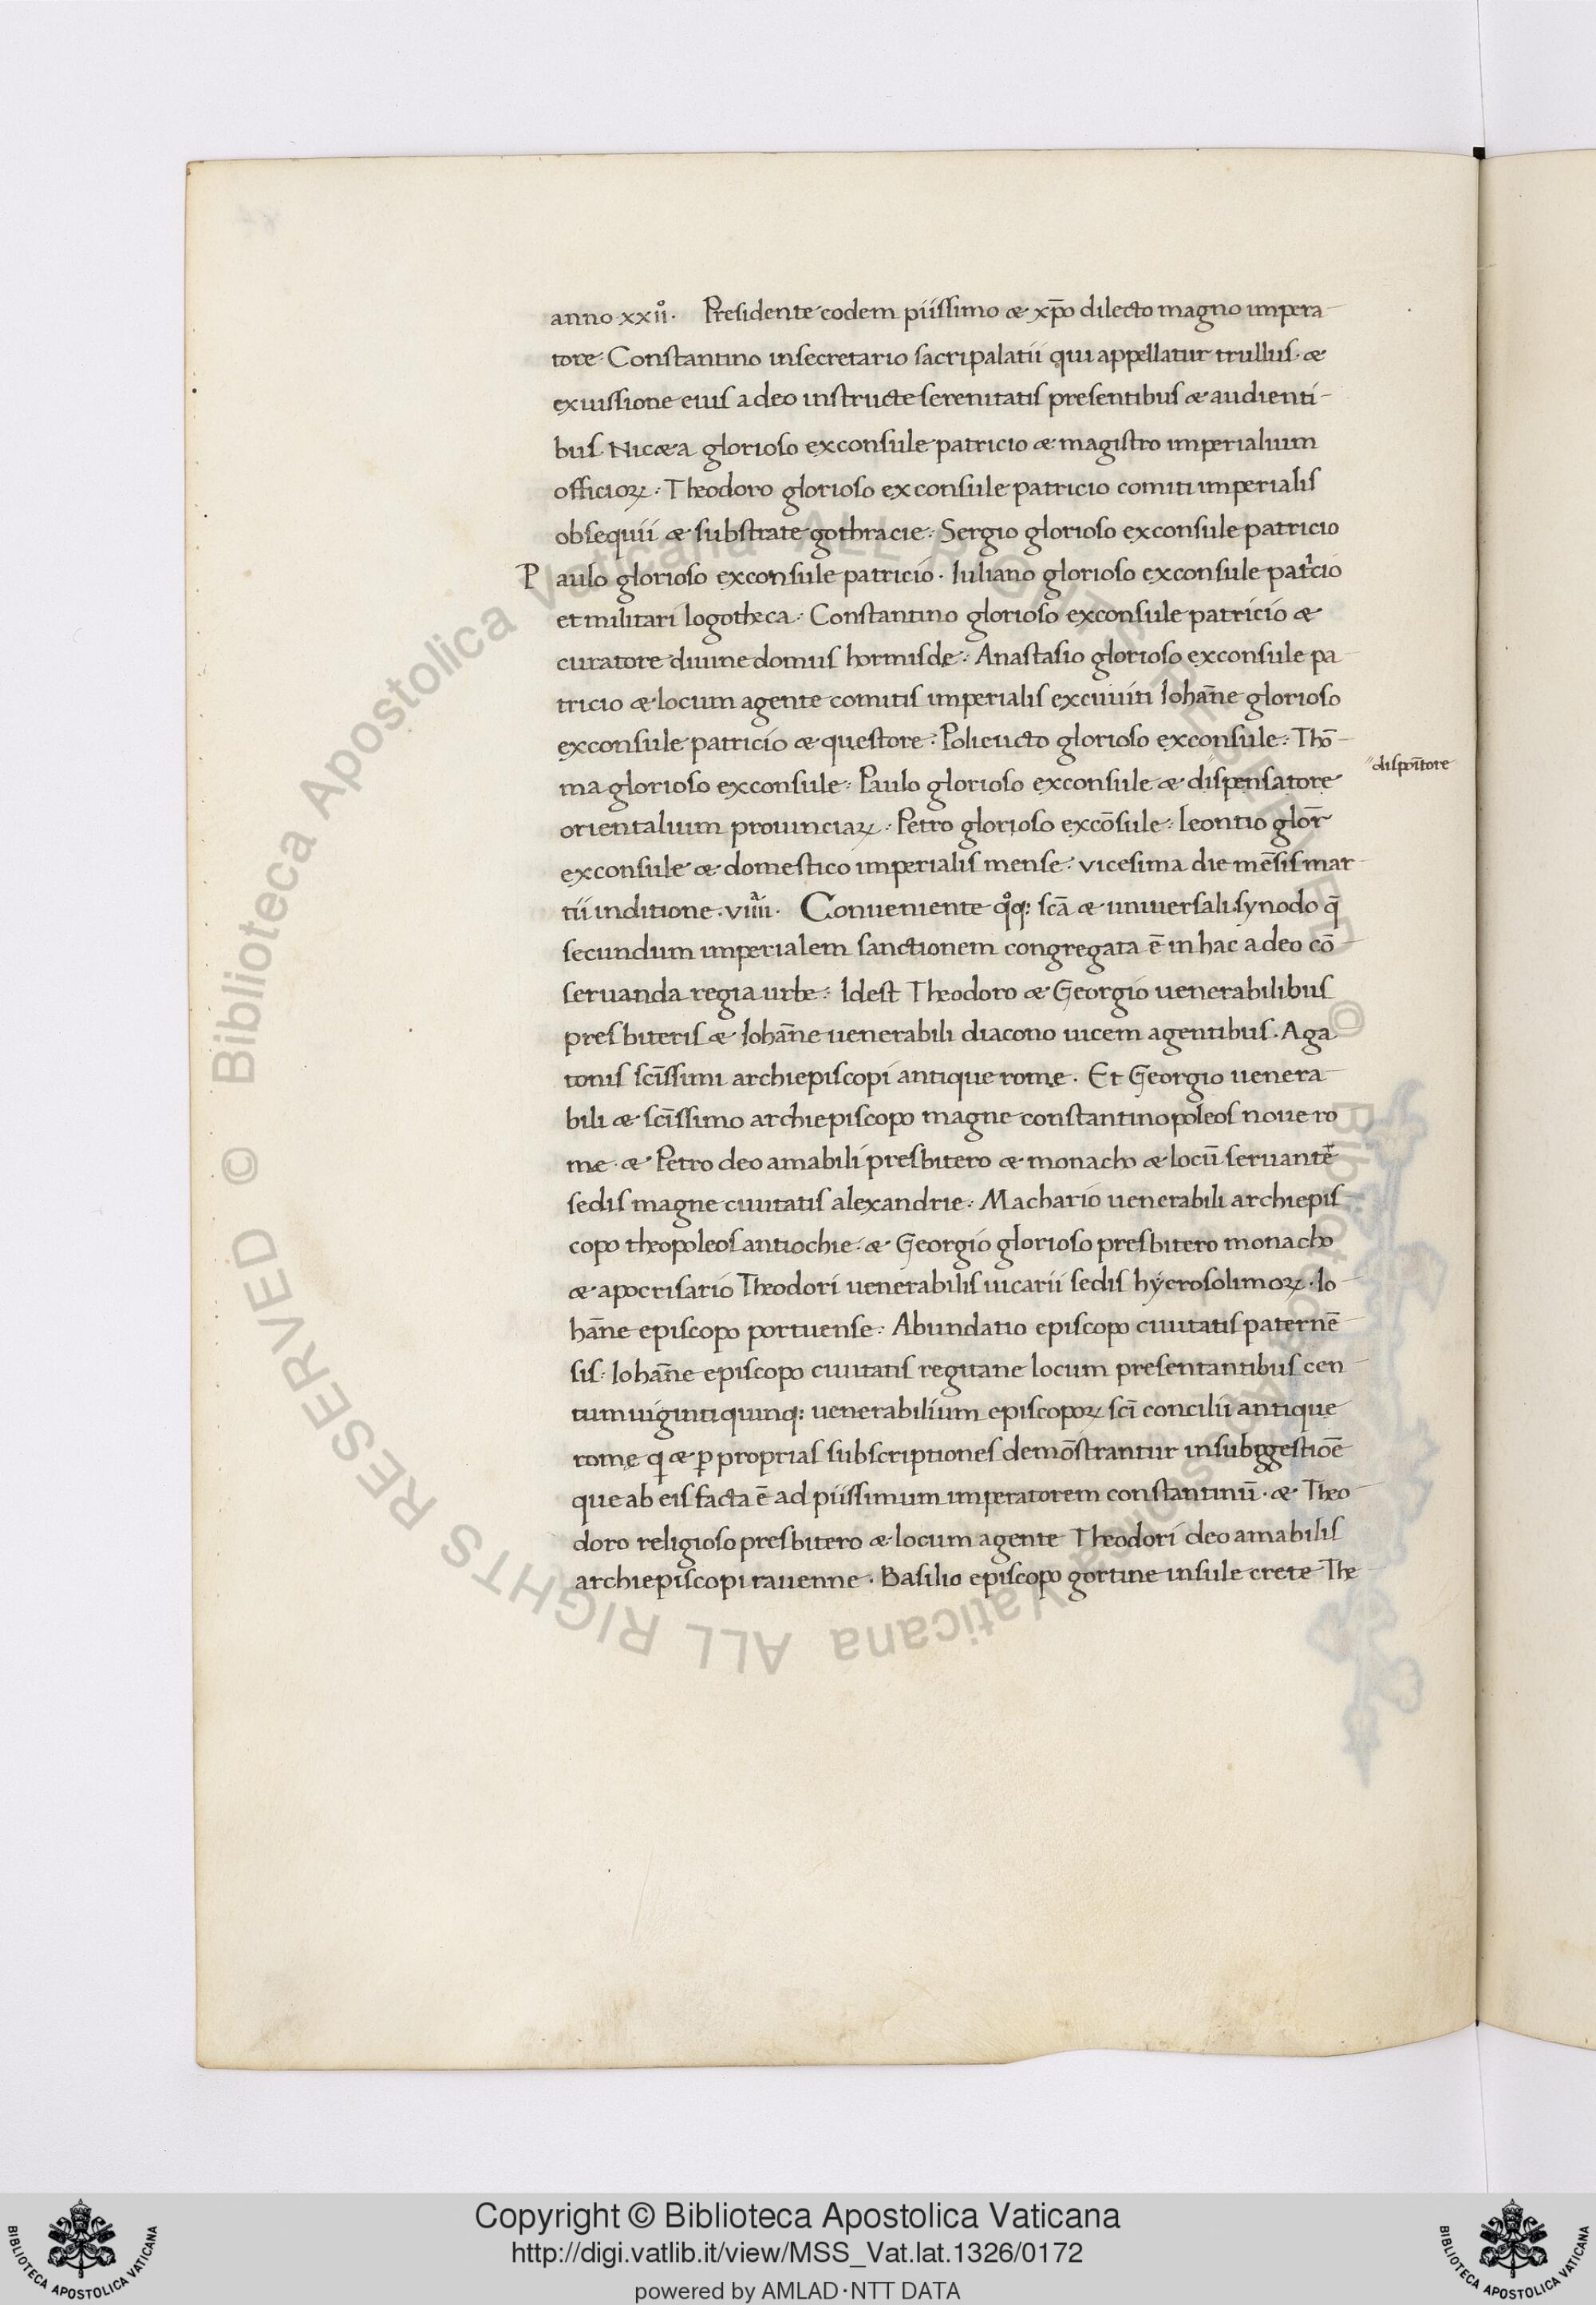 anno xxii͛. Presidente eodem piissimo & xp̄o dilecto magno impera
tore. Constantino insecretario sacri palatii qui appellatur trullus. &
exiussione eius a deo instructe serenitatis presentibus & audienti-
bus. Nic&a glorioso exconsule patricio & magistro imperialium
officioꝝ: Theodoro glorioso exconsule patricio comiti imperialis
obsequii & substrate gothracie: Sergio glorioso exconsule patricio
Paulo glorioso exconsule patricio. Iuliano glorioso exconsule patͥcio
et militari logotheca: Constantino glorioso exconsule patricio &
curatore diuine domus hormisdę: Anastasio glorioso exconsule pa
tricio & locum agente comitis imperialis excuuiti Iohan̄e glorioso
exconsule patricio & questore. Polieucto glorioso exconsule: Thō
ma glorioso exconsule: Paulo glorioso exconsule & dispensatore
dispoītore
orientalium prouinciaꝝ: Petro glorioso excōsule: Leontio glor̄
exconsule & domestico imperialis mense. vicesima die mēsis mar
tii inditione. viiii. Conueniente qͦq: scā & uniuersali synodo q̄
secundum imperialem sanctionem congregata ē in hac a deo cō
seruanda regia urbe: Idest Theodoro & Georgio uenerabilibus
presbiteris & Iohan̄e uenerabili diacono uicem agentibus. Aga
tonis sc̄issimi archiepiscopi antique romę. Et Georgio uenera
bili & sc̄issimo archiepiscopo magne constantinopoleos noue ro
me. & Petro deo amabili presbitero & monacho & locū seruante
sedis magne ciuitatis alexandrie: Machario uenerabili archiepis
copo theopoleos antiochie. & Georgio glorioso presbitero monacho
& apocrisario Theodori uenerabilis uicarii sedis hyerosolimoꝝ. Io
han̄e episcopo portuense: Abundatio episcopo ciuitatis paternē
sis: Iohan̄e episcopo ciuitatis regitane locum presentantibus cen
tum uiginti quinq: uenerabilium episcopoꝝ sc̄i concilii antique
romę qͥ & ꝑ proprias subscriptiones demōstrantur insubggestiōe
que ab eis facta ē ad piissimum imperatorem constantinū. & Theo
doro religioso presbitero & locum agente Theodori deo amabilis
archiepiscopi rauenne. Basilio episcopo gortine insule crete The
© Biblioteca Apostolica Vaticana ALL RIGHTS RESERVED © Biblioteca Apostolica Vaticana ALL RIGHTS RESERVED
Copyright © Biblioteca Apostolica Vaticana
http://digi.vatlib.it/view/MSS_Vat.lat.1326/0172
powered by AMLAD·NTT DATA
BIBLIOTECA APOSTOLICA VATICANA
BIBLIOTECA APOSTOLICA VATICANA